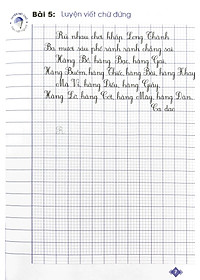 Bài 5: Luyện viết chữ đứng
Rủ nhau chơi khắp Long Thành
Ba mươi sáu phố rành rành chẳng sai
Hàng Bồ, hàng Bạc, hàng Gai,
Hàng Buồm, hàng Thiếc, hàng Bài, hàng Khay
Mã Vĩ, hàng Điếu, hàng Giày,
Hàng Lờ, hàng Cót, hàng Mây, hàng Đàn...
Ca dao